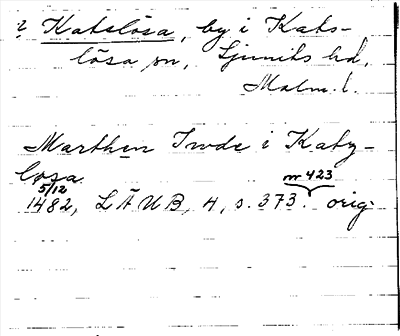 ? Katslösa, by i Kats-
lösa sn, Ljunits hd,
Malm. l.
Marthen Twde i Katz-
løsa
5/12 nr 423
1482, LÄUB, 4, s. 373. orig.